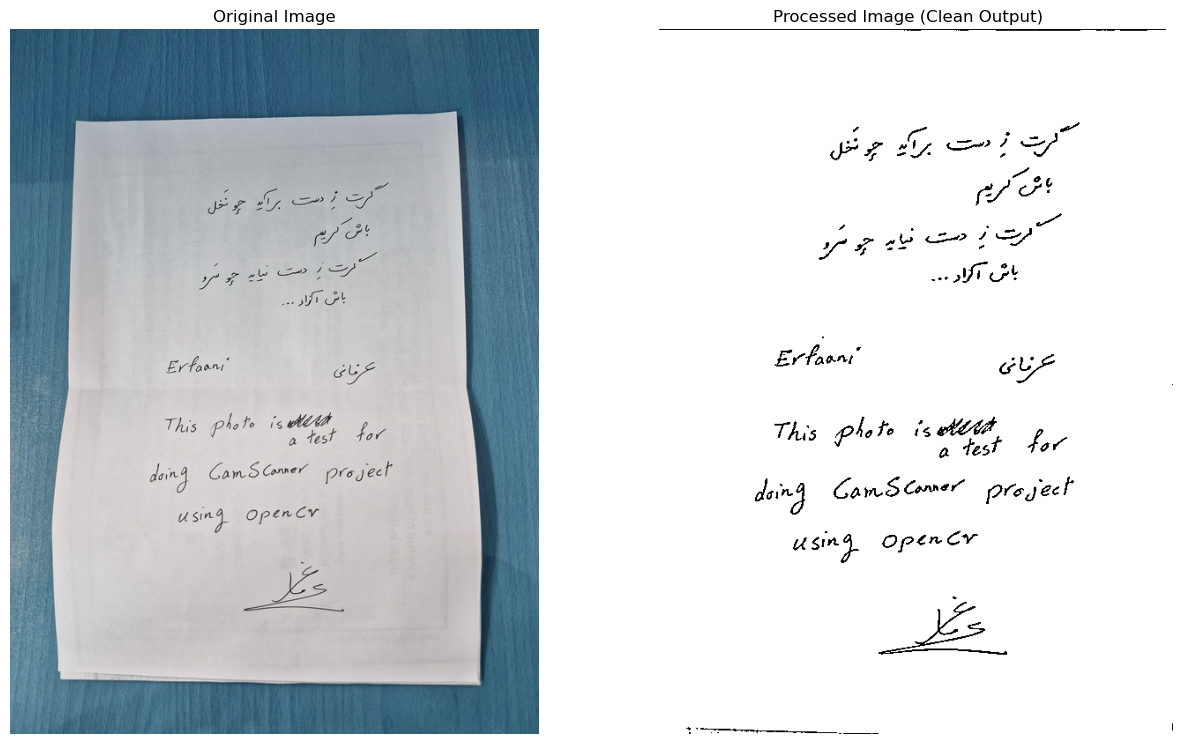 Original Image
گرت زِ دست برآید چو نَخل
باش کریم
گرت زِ دست نیاید چو سَرو
باش آزاد ...
Erfaani عرفانی
This photo is
a test for
doing CamScanner project
using OpenCv
Processed Image (Clean Output)
گرت زِ دست برآید چو نَخل
باش کریم
گرت زِ دست نیاید چو سَرو
باش آزاد ...
Erfaani عرفانی
This photo is
a test for
doing CamScanner project
using OpenCv